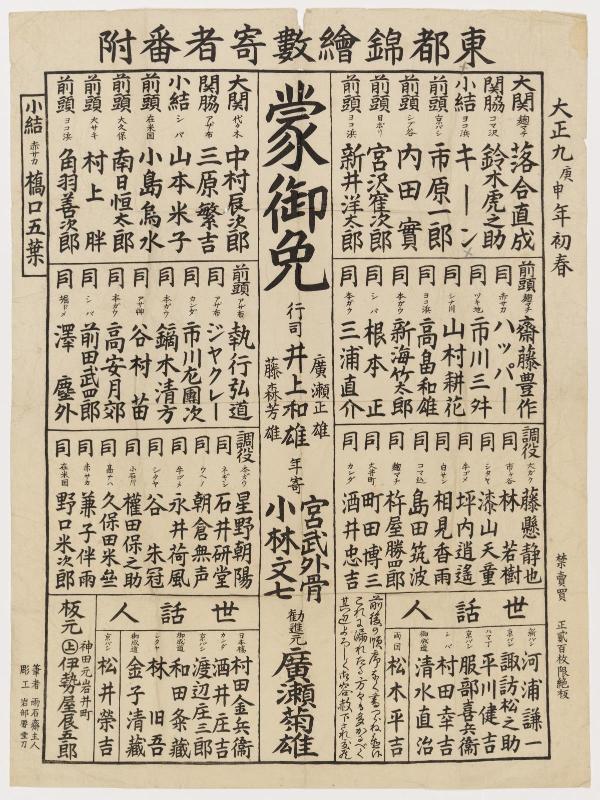 東都錦繪數寄者番附
大正九庚申年初春
大関 麹マチ 落合直成
関脇 コマ沢 鈴木虎之助
小結 ヨコ浜 キーン
前頭 京バシ 市原一郎
前頭 シブ谷 内田實
前頭 日ボリ 宮沢寉次郎
前頭 ヨコ浜 新井洋太郎
前頭 麹マチ 齋藤豊作
同 赤サカ ハッパー
同 ツキ地 市川三舛
同 シナ川 山村耕花
同 ヨコ浜 高畠和雄
同 本ガウ 新海竹太郎
同 シバ 根本正
同 本ガウ 三浦直介
調役 大ガク 藤懸静也
同 市ヶ谷 林若樹
同 シタヤ 漆山天童
同 牛ゴメ 坪内逍遙
同 白サン 相見香雨
同 コマ込 島田筑波
同 麹マチ 杵屋勝四郎
同 大井町 町田博三
同 カンダ 酒井忠吉
世話人
新バシ 河浦謙一
京バシ 諏訪松之助
ハマ丁 平川健吉
京バシ 服部喜兵衛
シバ 村田幸吉
御成道 清水直治
両国 松木平吉
蒙御免
行司
廣瀬正雄
井上和雄
藤森芳雄
年寄
宮武外骨
小林文七
勧進元
廣瀬菊雄
大関 代々木 中村辰次郎
関脇 アザ布 三原繁吉
小結 シバ 山本米子
前頭 在米国 小島烏水
前頭 大久保 南日恒太郎
前頭 大サキ 村上胖
前頭 ヨコ浜 角羽善次郎
小結 赤サカ 橋口五葉
前頭 アザ布 執行弘道
同 アザ布 ジヤクレー
同 カンダ 市川左團次
同 本ガウ 鏑木清方
同 アサ卯 谷村苗
同 本ガウ 高安月郊
同 シバ 前田武四郎
同 堀ドメ 澤塵外
調役 本ガウ 星野朝陽
同 ネギシ 石井研堂
同 ウヘノ 朝倉無声
同 牛ゴメ 永井荷風
同 シタヤ 谷朱冠
同 小石川 權田保之助
同 高ナハ 久保田米斎
同 赤サカ 兼子伴雨
同 在米国 野口米次郎
世話人
日本橋 村田金兵衛
カンダ 酒井庄吉
京バシ 渡辺庄三郎
御成道 和田粂藏
シタヤ 林旧吾
御成道 金子清藏
京バシ 松井榮吉
板元 神田元岩井町
上 伊勢屋辰五郎
筆者 雨石齋主人
彫工 岩部署堂刀
禁賣買 正貳百枚限絶板